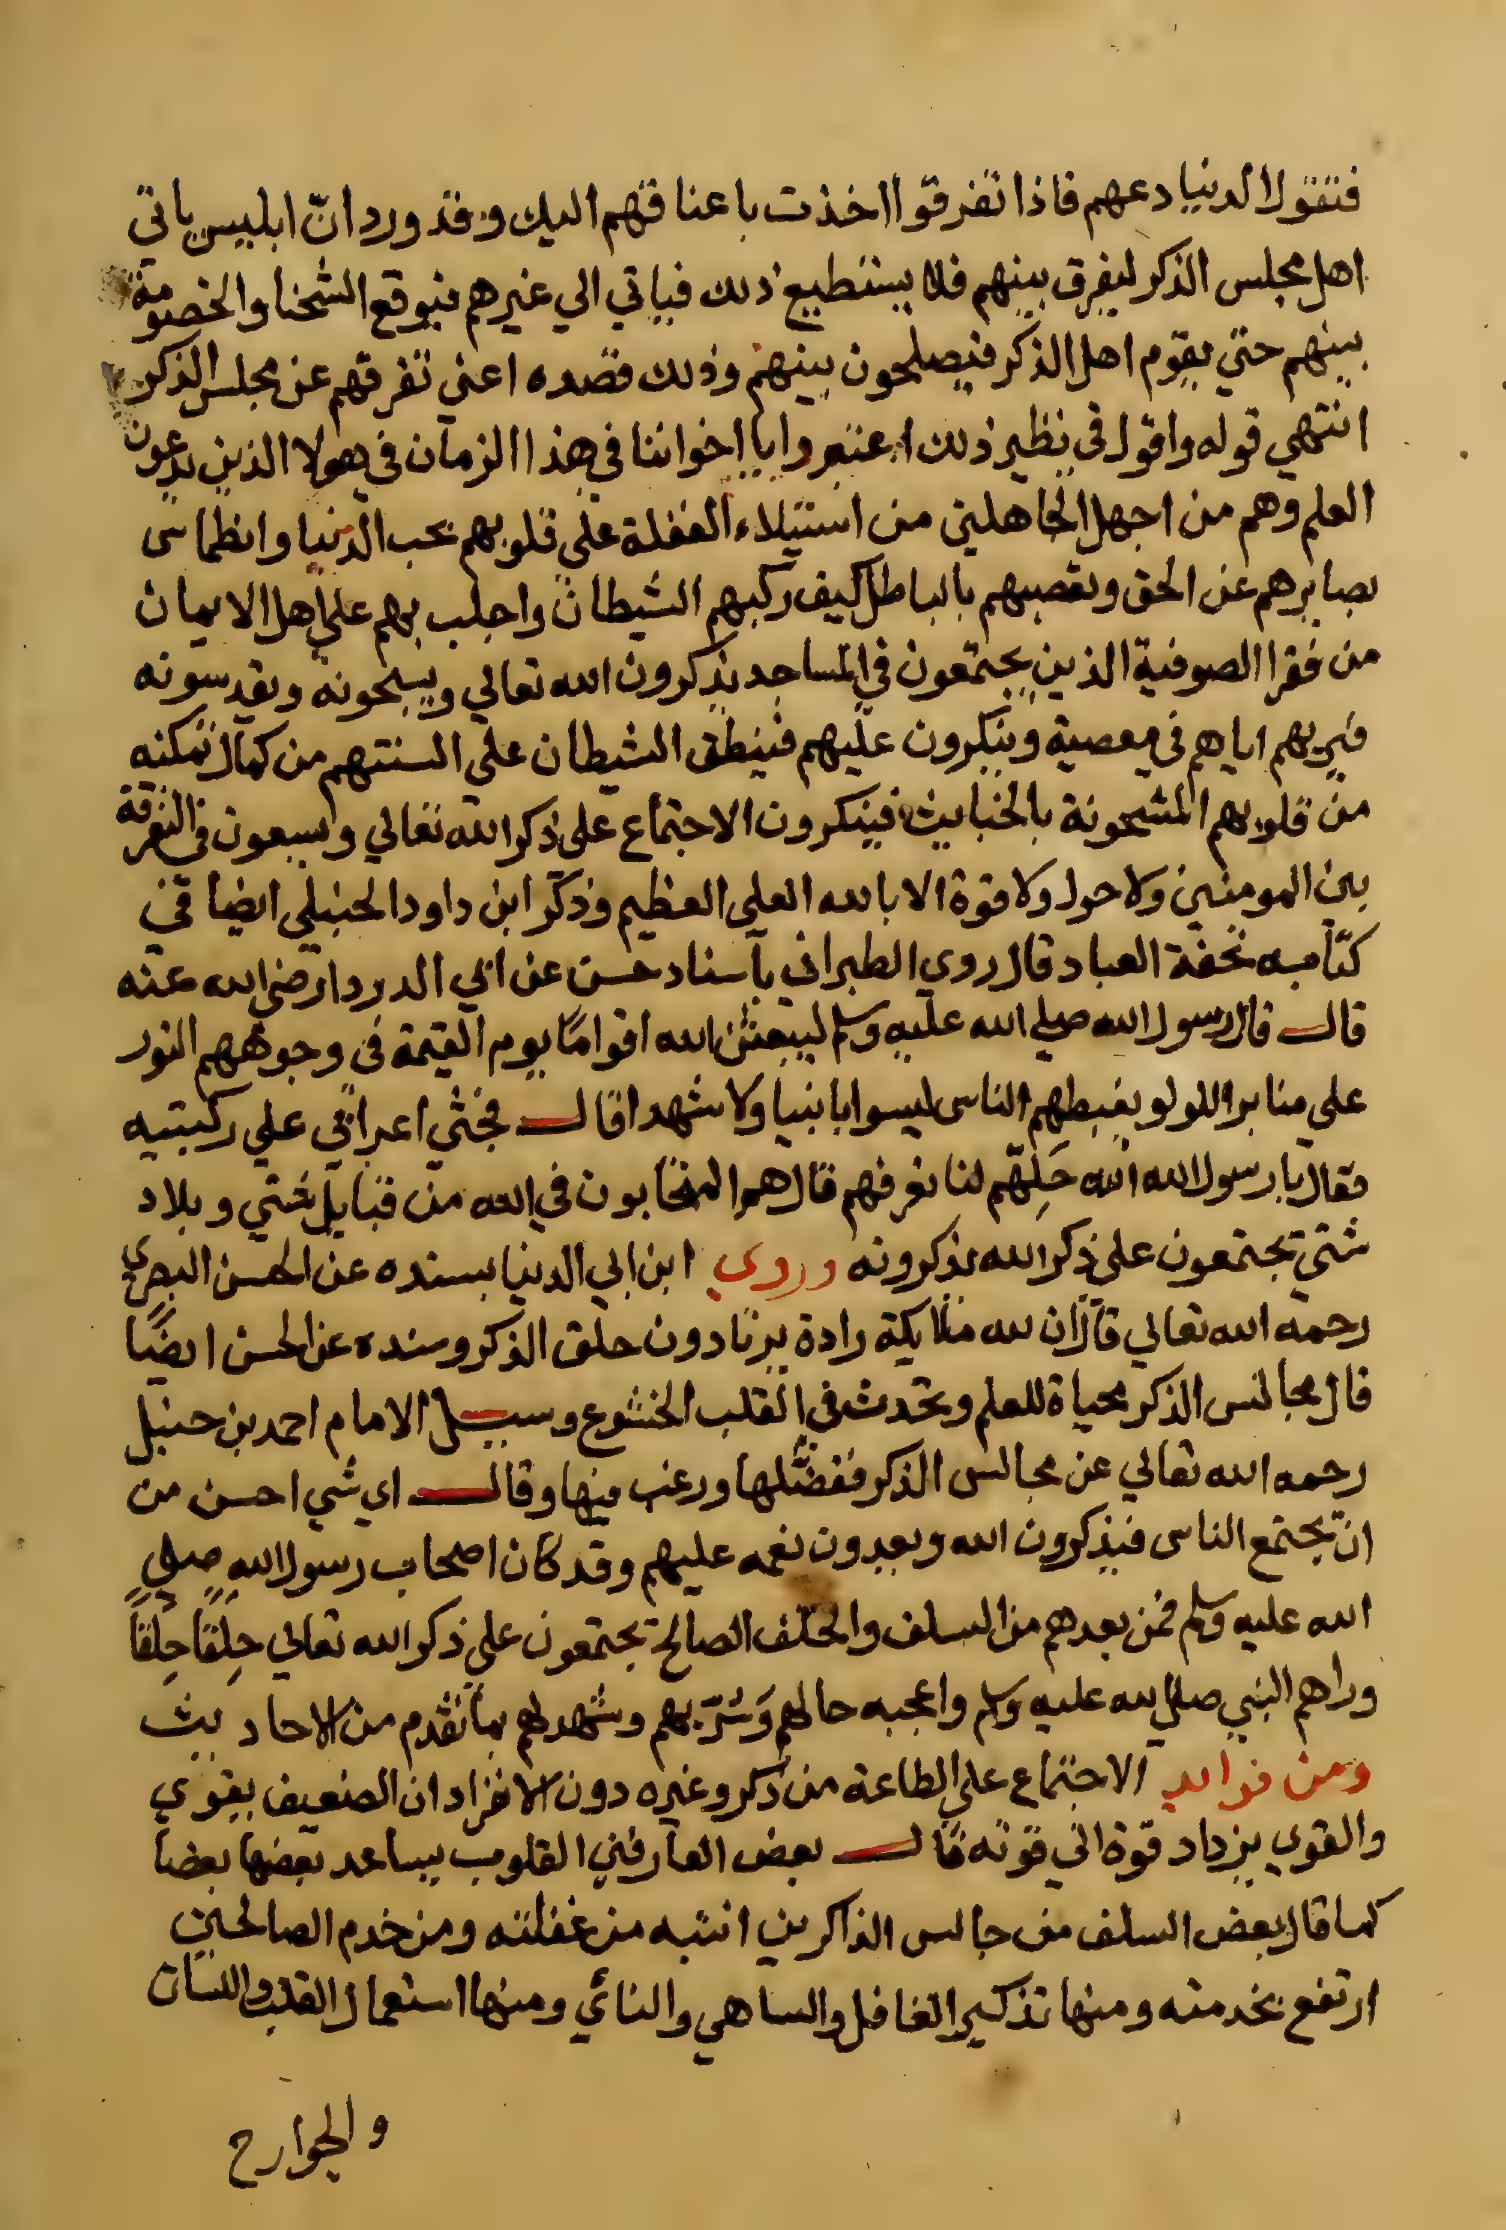 فتقول الدنيا دعهم فاذا تفرقوا اخذت باعناقهم اليك وقد ورد انّ ابليس ياتي
اهل مجلس الذكر ليفرق بينهم فلا يستطيع ذلك فياتي الي غيرهم فيوقع الشحنا والخصومة
بينهم حتي يقوم اهل الذكر فيصلحون بينهم وذلك قصده اعني تفرقهم عن مجلس الذكر
انتهي قوله واقول في نظير ذلك اعتبروا يا اخواننا في هذا الزمان في هولا الذين يدعون
العلم وهم من اجهل الجاهلين من استيلاء الغفلة علي قلوبهم بحب الدنيا وانطماس
بصايرهم عن الحق وتعصبهم بالباطل كيف ركبهم الشيطان واجلب بهم علي اهل الايمان
من فقرا الصوفية الذين يجتمعون في المساجد يذكرون الله تعالي ويسبحونه ويقدسونه
فيريهم اياهم في معصية وينكرون عليهم فينطق الشيطان علي السنتهم من كمال تمكنه
من قلوبهم المشحونة بالخبايث فينكرون الاجتماع علي ذكر الله تعالي ويسعون في التفرقة
بين المومنين ولا حول ولا قوة الا بالله العلي العظيم وذكر ابن داود الحنبلي ايضا في
كتابه تحفة العباد قال روي الطبراني باسناد حسن عن ابي الدردا رضي الله عنه
قال قال رسول الله صلي الله عليه وسلم ليبعثن الله اقواما يوم القيمة في وجوههم النور
علي منابر اللولو يغبطهم الناس ليسوا بانبيا ولا شهدا قال فجثي اعرابي علي ركبتيه
فقال يا رسول الله حَلِّهم لنا نعرفهم قال هم المتحابون في الله من قبايل شتي وبلاد
شتي يجتمعون علي ذكر الله يذكرونه وروي ابن ابي الدنيا بسنده عن الحسن البصري
رحمه الله تعالي قال ان لله ملايكة رادة يرتادون حلق الذكر وسنده عن الحسن ايضًا
قال مجالس الذكر محياة للعلم وتحدث في القلب الخشوع وسيل الامام احمد بن حنبل
رحمه الله تعالي عن مجالس الذكر ففضّلها ورغب فيها وقال اي شي احسن من
ان يجتمع الناس فيذكرون الله ويعددون نعمه عليهم وقد كان اصحاب رسول الله صلي
الله عليه وسلم فمن بعدهم من السلف والخلف الصالح يجتمعون علي ذكر الله تعالي حِلَقًا حِلَقًا
وراهم النبي صلي الله عليه وسلم واعجبه حالهم وَسُرّ بهم وشهد لهم بما تقدم من الاحاديث
ومن فوايد الاجتماع علي الطاعة من ذكر وغيره دون الانفراد ان الضعيف يقوي
والقوي يزداد قوة الي قوته قال بعض العارفين القلوب يساعد بعضها بعضا
كما قال بعض السلف من جالس الذاكرين انتبه من غفلته ومن خدم الصالحين
ارتفع بخدمته ومنها تذكير الغافل والساهي والنائي ومنها استعمال القلب واللسان
والجوارح